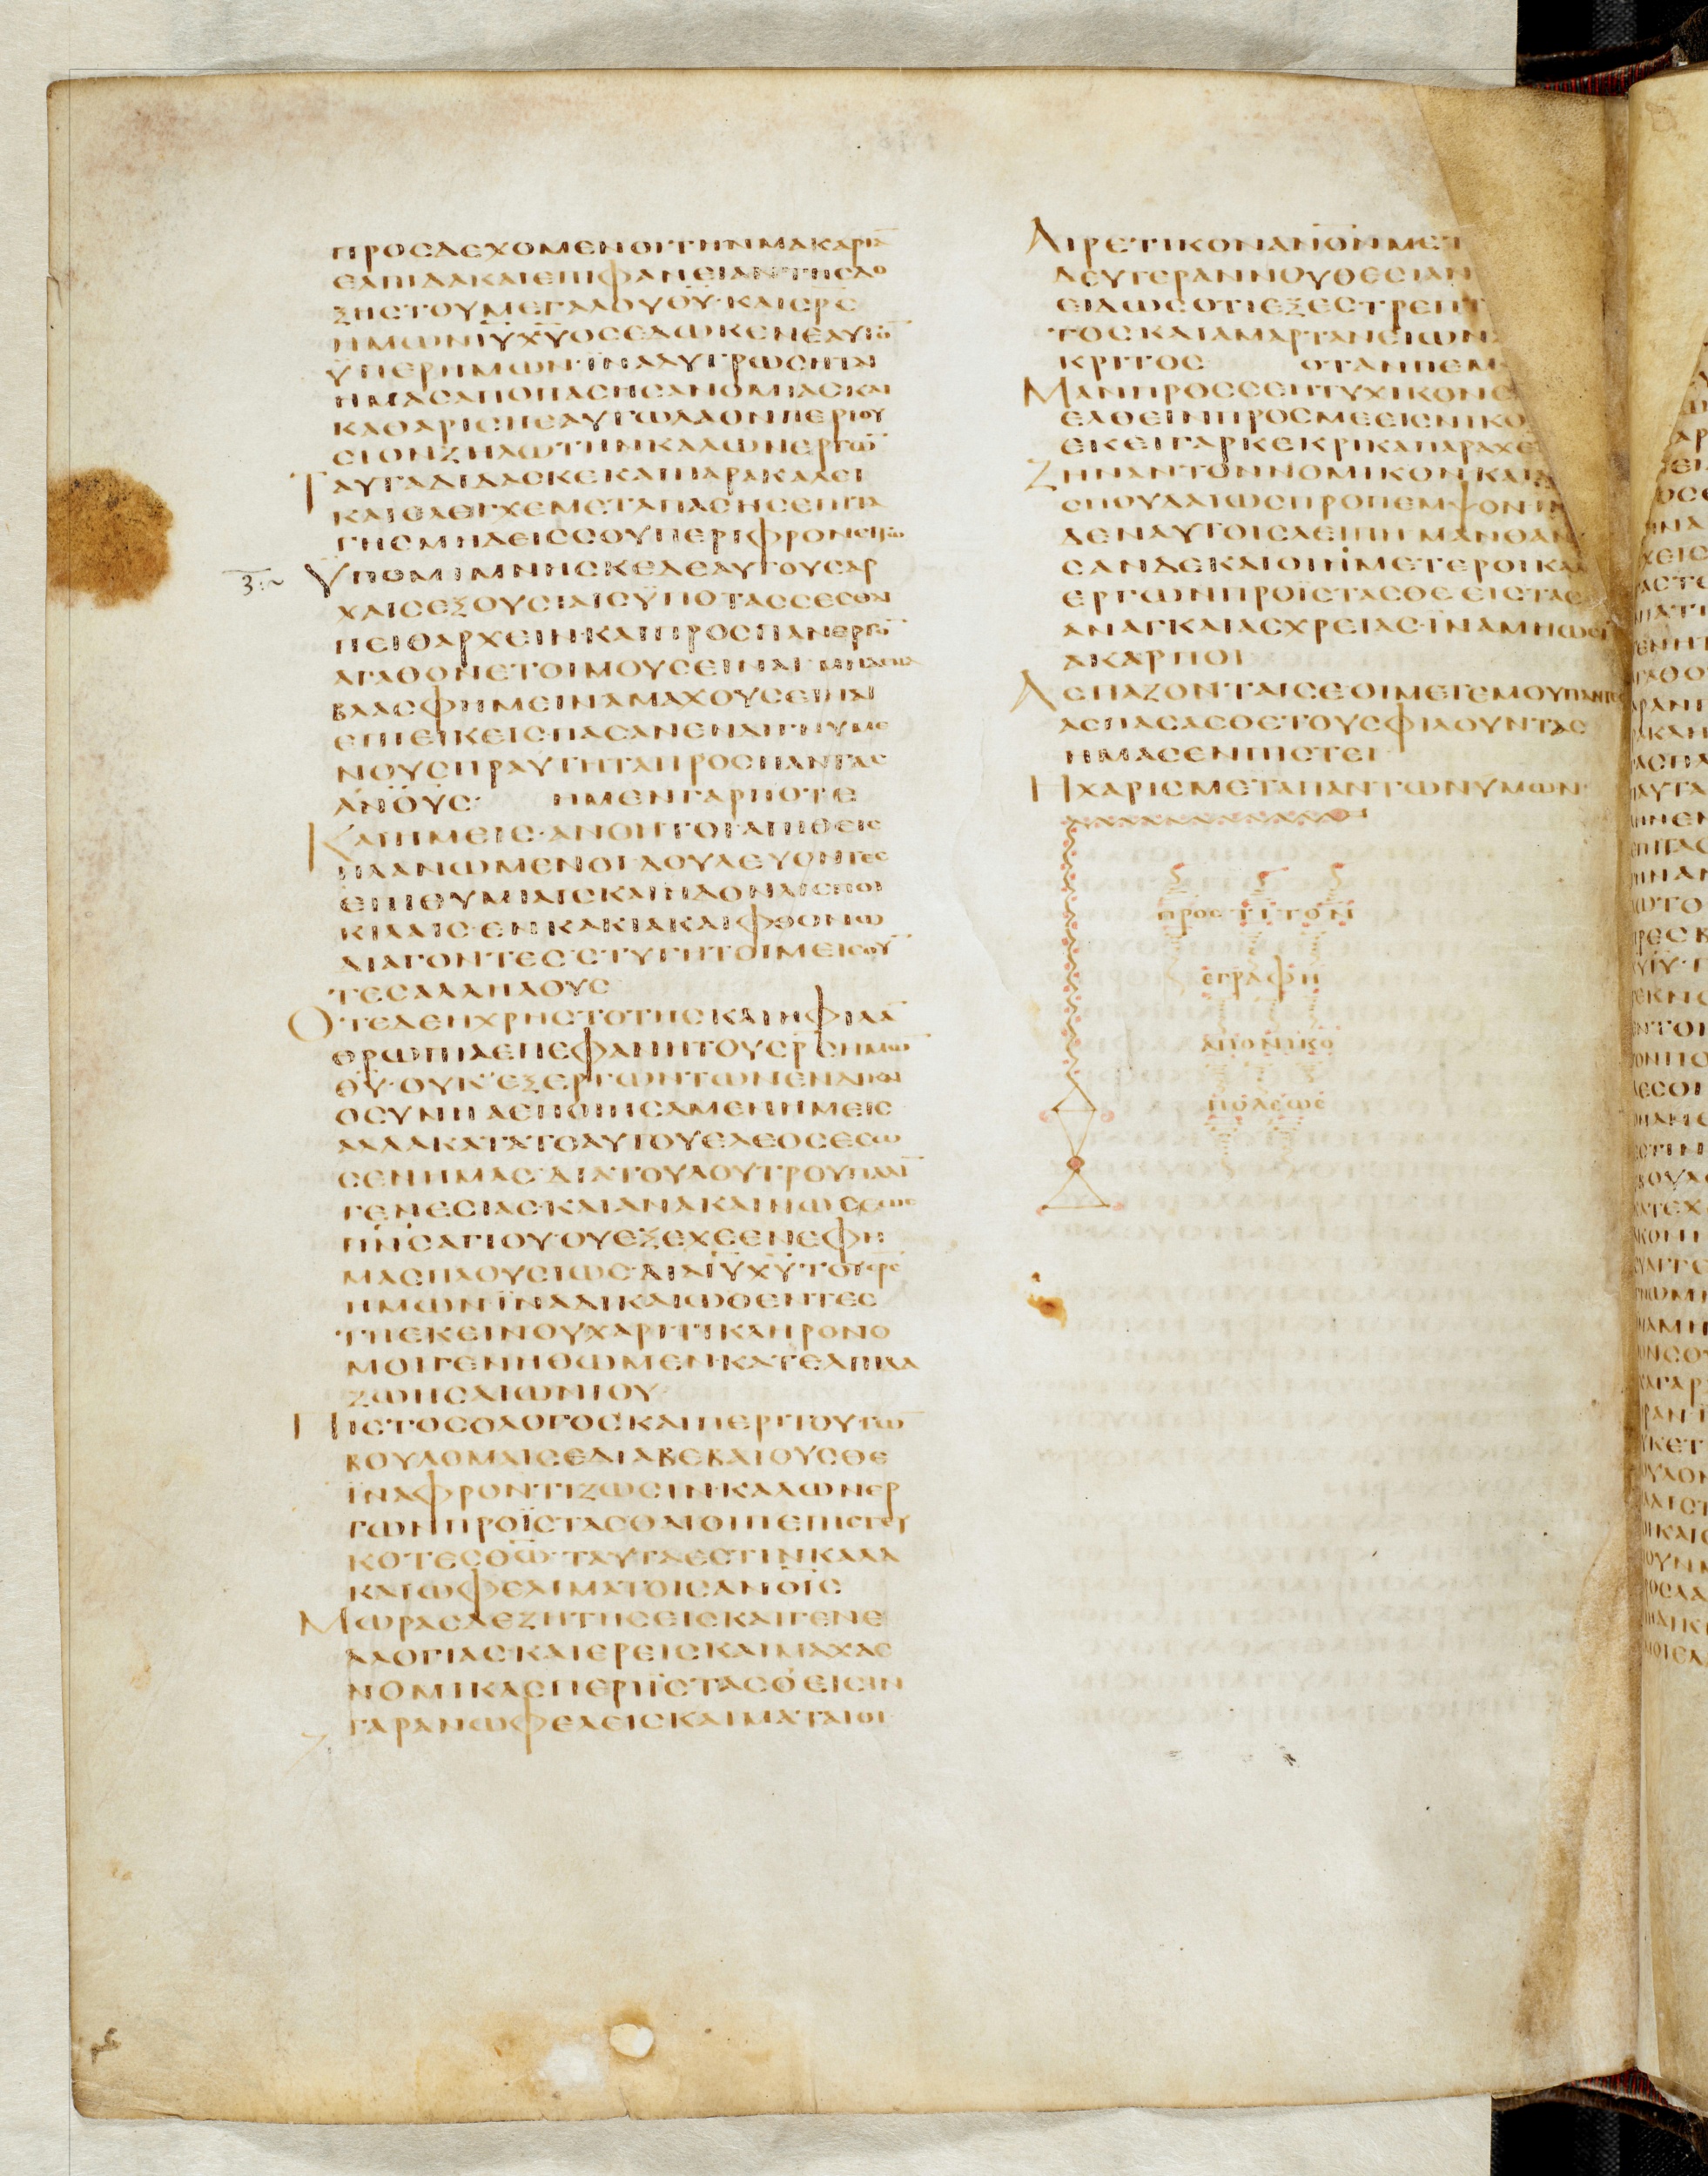 ΠΡΟϹΔΕΧΟΜΕΝΟΙΤΗΝΜΑΚΑΡΙΑ̅
ΕΛΠΙΔΑΚΑΙΕΠΙΦΑΝΕΙΑΝΤΗϹΔΟ
ΞΗϹΤΟΥΜΕΓΑΛΟΥΘ̅Υ̅·ΚΑΙϹΡ̅Ϲ̅
ΗΜΩΝΙ̅Υ̅Χ̅Υ̅ΟϹΕΔΩΚΕΝΕΑΥΤΟ̅
ΥΠΕΡΗΜΩΝ·ΪΝΑΛΥΤΡΩϹΗΤΑΙ
ΗΜΑϹΑΠΟΠΑϹΗϹΑΝΟΜΙΑϹΚΑΙ
ΚΑΘΑΡΙϹΗΕΑΥΤΩΛΑΟΝΠΕΡΙΟΥ
ϹΙΟΝΖΗΛΩΤΗΝΚΑΛΩΝΕΡΓΩ̅
ΤΑΥΤΑΔΙΔΑϹΚΕΚΑΙΠΑΡΑΚΑΛΕΙ
ΚΑΙΕΛΕΓΧΕΜΕΤΑΠΑϹΗϹΕΠΙΤΑ
ΓΗϹΜΗΔΕΙϹϹΟΥΠΕΡΙΦΡΟΝΕΙΤΩ
ΥΠΟΜΙΜΝΗϹΚΕΔΕΑΥΤΟΥϹΑΡ
ΧΑΙϹΕΞΟΥϹΙΑΙϹΫΠΟΤΑϹϹΕϹΘΑΙ
ΠΕΙΘΑΡΧΕΙΝ·ΚΑΙΠΡΟϹΠΑΝΕΡΓΟ̅
ΑΓΑΘΟΝΕΤΟΙΜΟΥϹΕΙΝΑΙ·ΜΗΔΕΝΑ
ΒΛΑϹΦΗΜΕΙΝΑΜΑΧΟΥϹΕΙΝΑΙ
ΕΠΙΕΙΚΕΙϹ·ΠΑϹΑΝΕΝΔΙΓΝΥΜΕ
ΝΟΥϹΠΡΑΥΤΗΤΑΠΡΟϹΠΑΝΤΑϹ
Α̅Ν̅Ο̅Υ̅Ϲ̅· ΗΜΕΝΓΑΡΠΟΤΕ
ΚΑΙΗΜΕΙϹ·ΑΝΟΗΤΟΙΑΠΙΘΕΙϹ
ΠΛΑΝΩΜΕΝΟΙ·ΔΟΥΛΕΥΟΝΤΕϹ
ΕΠΙΘΥΜΙΑΙϹΚΑΙΗΔΟΝΑΙϹΠΟΙ
ΚΙΛΑΙϹ·ΕΝΚΑΚΙΑΚΑΙΦΘΟΝΩ
ΔΙΑΓΟΝΤΕϹ·ϹΤΥΓΗΤΟΙΜΕΙϹΟΥ̅
ΤΕϹΑΛΛΗΛΟΥϹ
ΟΤΕΔΕΗΧΡΗϹΤΟΤΗϹΚΑΙΗΦΙΛΑ̅
ΘΡΩΠΙΑΕΠΕΦΑΝΗΤΟΥϹΡ̅Ϲ̅ΗΜΩ̅
Θ̅Υ̅·ΟΥΚΕΞΕΡΓΩΝΤΩΝΕΝΔΙΚΑΙ
ΟϹΥΝΗΑϹΠΟΙΗϹΑΜΕΝΗΜΕΙϹ
ΑΛΛΑΚΑΤΑΤΟΑΥΤΟΥΕΛΕΟϹΕϹΩ
ϹΕΝΗΜΑϹ·ΔΙΑΤΟΥΛΟΥΤΡΟΥΠΑΛΙ
ΓΕΝΕϹΙΑϹ·ΚΑΙΑΝΑΚΑΙΝΩϹΕΩϹ
Π̅Ν̅Ϲ̅ΑΓΙΟΥ·ΟΥΕΞΕΧΕΕΝΕΦΗ
ΜΑϹΠΛΟΥϹΙΩϹ·ΔΙΑΙ̅Υ̅Χ̅Υ̅ΤΟΥϹΡ̅Ϲ̅
ΗΜΩΝΪΝΑΔΙΚΑΙΩΘΕΝΤΕϹ
ΤΗΕΚΕΙΝΟΥΧΑΡΙΤΙΚΛΗΡΟΝΟ
ΜΟΙΓΕΝΗΘΩΜΕΝ·ΚΑΤΕΛΠΙΔΑ
ΖΩΗϹΑΙΩΝΙΟΥ
ΠΙϹΤΟϹΟΛΟΓΟϹΚΑΙΠΕΡΙΤΟΥΤΩ̅
ΒΟΥΛΟΜΑΙϹΕΔΙΑΒΕΒΑΙΟΥϹΘΕ
ΪΝΑΦΡΟΝΤΙΖΩϹΙΝ·ΚΑΛΩΝΕΡ
ΓΩΝΠΡΟΪϹΤΑϹΘΑΙΟΙΠΕΠΙϹΤΕΥ
ΚΟΤΕϹΘ̅Ω̅·ΤΑΥΤΑΕϹΤΙΝΚΑΛΑ
ΚΑΙΩΦΕΛΙΜΑΤΟΙϹΑ̅Ν̅Ο̅Ι̅Ϲ̅
ΜΩΡΑϹΔΕΖΗΤΗϹΕΙϹΚΑΙΓΕΝΕ
ΑΛΟΓΙΑϹ·ΚΑΙΕΡΕΙϹΚΑΙΜΑΧΑϹ
ΝΟΜΙΚΑϹΠΕΡΙΪϹΤΑϹΟ·ΕΙϹΙΝ
ΓΑΡΑΝΩΦΕΛΕΙϹΚΑΙΜΑΤΑΙΟΙ
ΑΙΡΕΤΙΚΟΝΑ̅Ν̅Ο̅Ν̅ΜΕΤ
ΔΕΥΤΕΡΑΝΝΟΥΘΕϹΙΑΝ
ΕΙΔΩϹΟΤΙΕΞΕϹΤΡΕΠΤ
ΤΟϹΚΑΙΑΜΑΡΤΑΝΕΙΩΝ
ΚΡΙΤΟϹ ΟΤΑΝΠΕΜ
ΜΑΝΠΡΟϹϹΕΗΤΥΧΙΚΟΝϹ
ΕΛΘΕΙΝΠΡΟϹΜΕΕΙϹΝΙΚΟ
ΕΚΕΙΓΑΡΚΕΚΡΙΚΑΠΑΡΑΧΕ
ΖΗΝΑΝΤΟΝΝΟΜΙΚΟΝΚΑΙΑ
ϹΠΟΥΔΑΙΩϹΠΡΟΠΕΜΨΟΝΙΝ
ΔΕΝΑΥΤΟΙϹΛΕΙΠΗΜΑΝΘΑΝ
ϹΑΝΔΕΚΑΙΟΙΗΜΕΤΕΡΟΙΚΑΛ
ΕΡΓΩΝΠΡΟΪϹΤΑϹΘΕΕΙϹΤΑϹ
ΑΝΑΓΚΑΙΑϹΧΡΕΙΑϹ·ΪΝΑΜΗΩϹΙ
ΑΚΑΡΠΟΙ
ΑϹΠΑΖΟΝΤΑΙϹΕΟΙΜΕΤΕΜΟΥΠΑΝΤΕϹ
ΑϹΠΑϹΑϹΘΕΤΟΥϹΦΙΛΟΥΝΤΑϹ
ΗΜΑϹΕΝΠΙϹΤΕΙ
ΗΧΑΡΙϹΜΕΤΑΠΑΝΤΩΝΥΜΩΝ
ΠΡΟϹΤΙΤΟΝ
ΕΓΡΑΦΗ
ΑΠΟΝΙΚΟ
ΠΟΛΕΩϹ